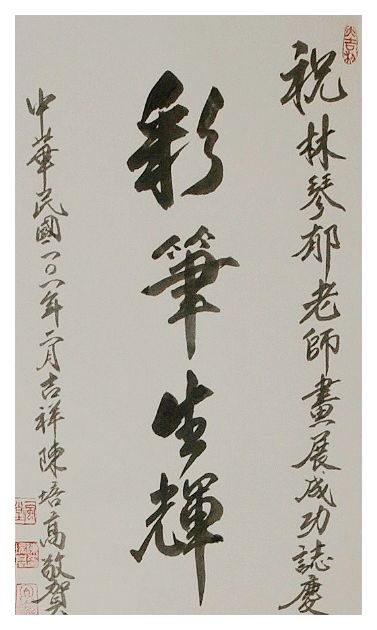 祝林琴郁老師畫展成功誌慶
彩筆生輝
中華民國一〇一年二月吉祥陳培高敬賀